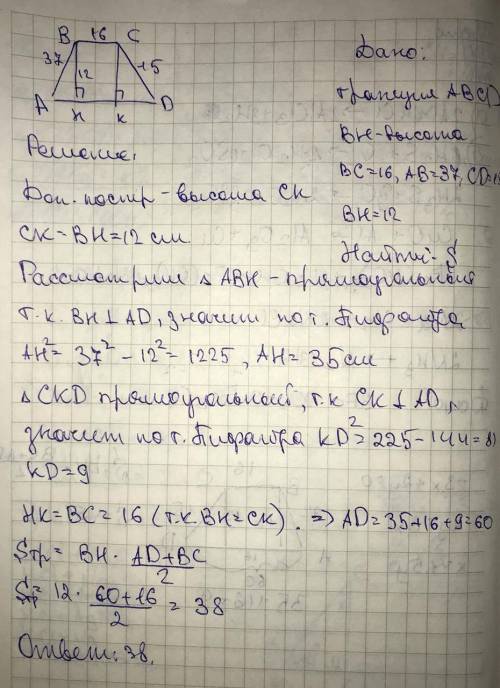 B 16 C
37 12 15
A H K D
Дано:
трапеция ABCD
BH-высота
BC=16, AB=37, CD=1
BH=12
Найти: S
Решение.
Доп. постр-высота CK
CK=BH=12 см
Рассмотрим △ ABH - прямоугольный
т.к. BH⊥AD, значит по т. Пифагора
AH²= 37² - 12² = 1225, AH= 35 см
△ CKD прямоугольный, т.к CK⊥AD,
значит по т. Пифагора KD²=225-144=81
KD=9
HK=BC=16 (т.к. BH=CK). ⇒ AD=35+16+9=60
Sтр= BH · AD+BC/2
Sтр= 12 · 60+16/2 = 38
Ответ: 38.